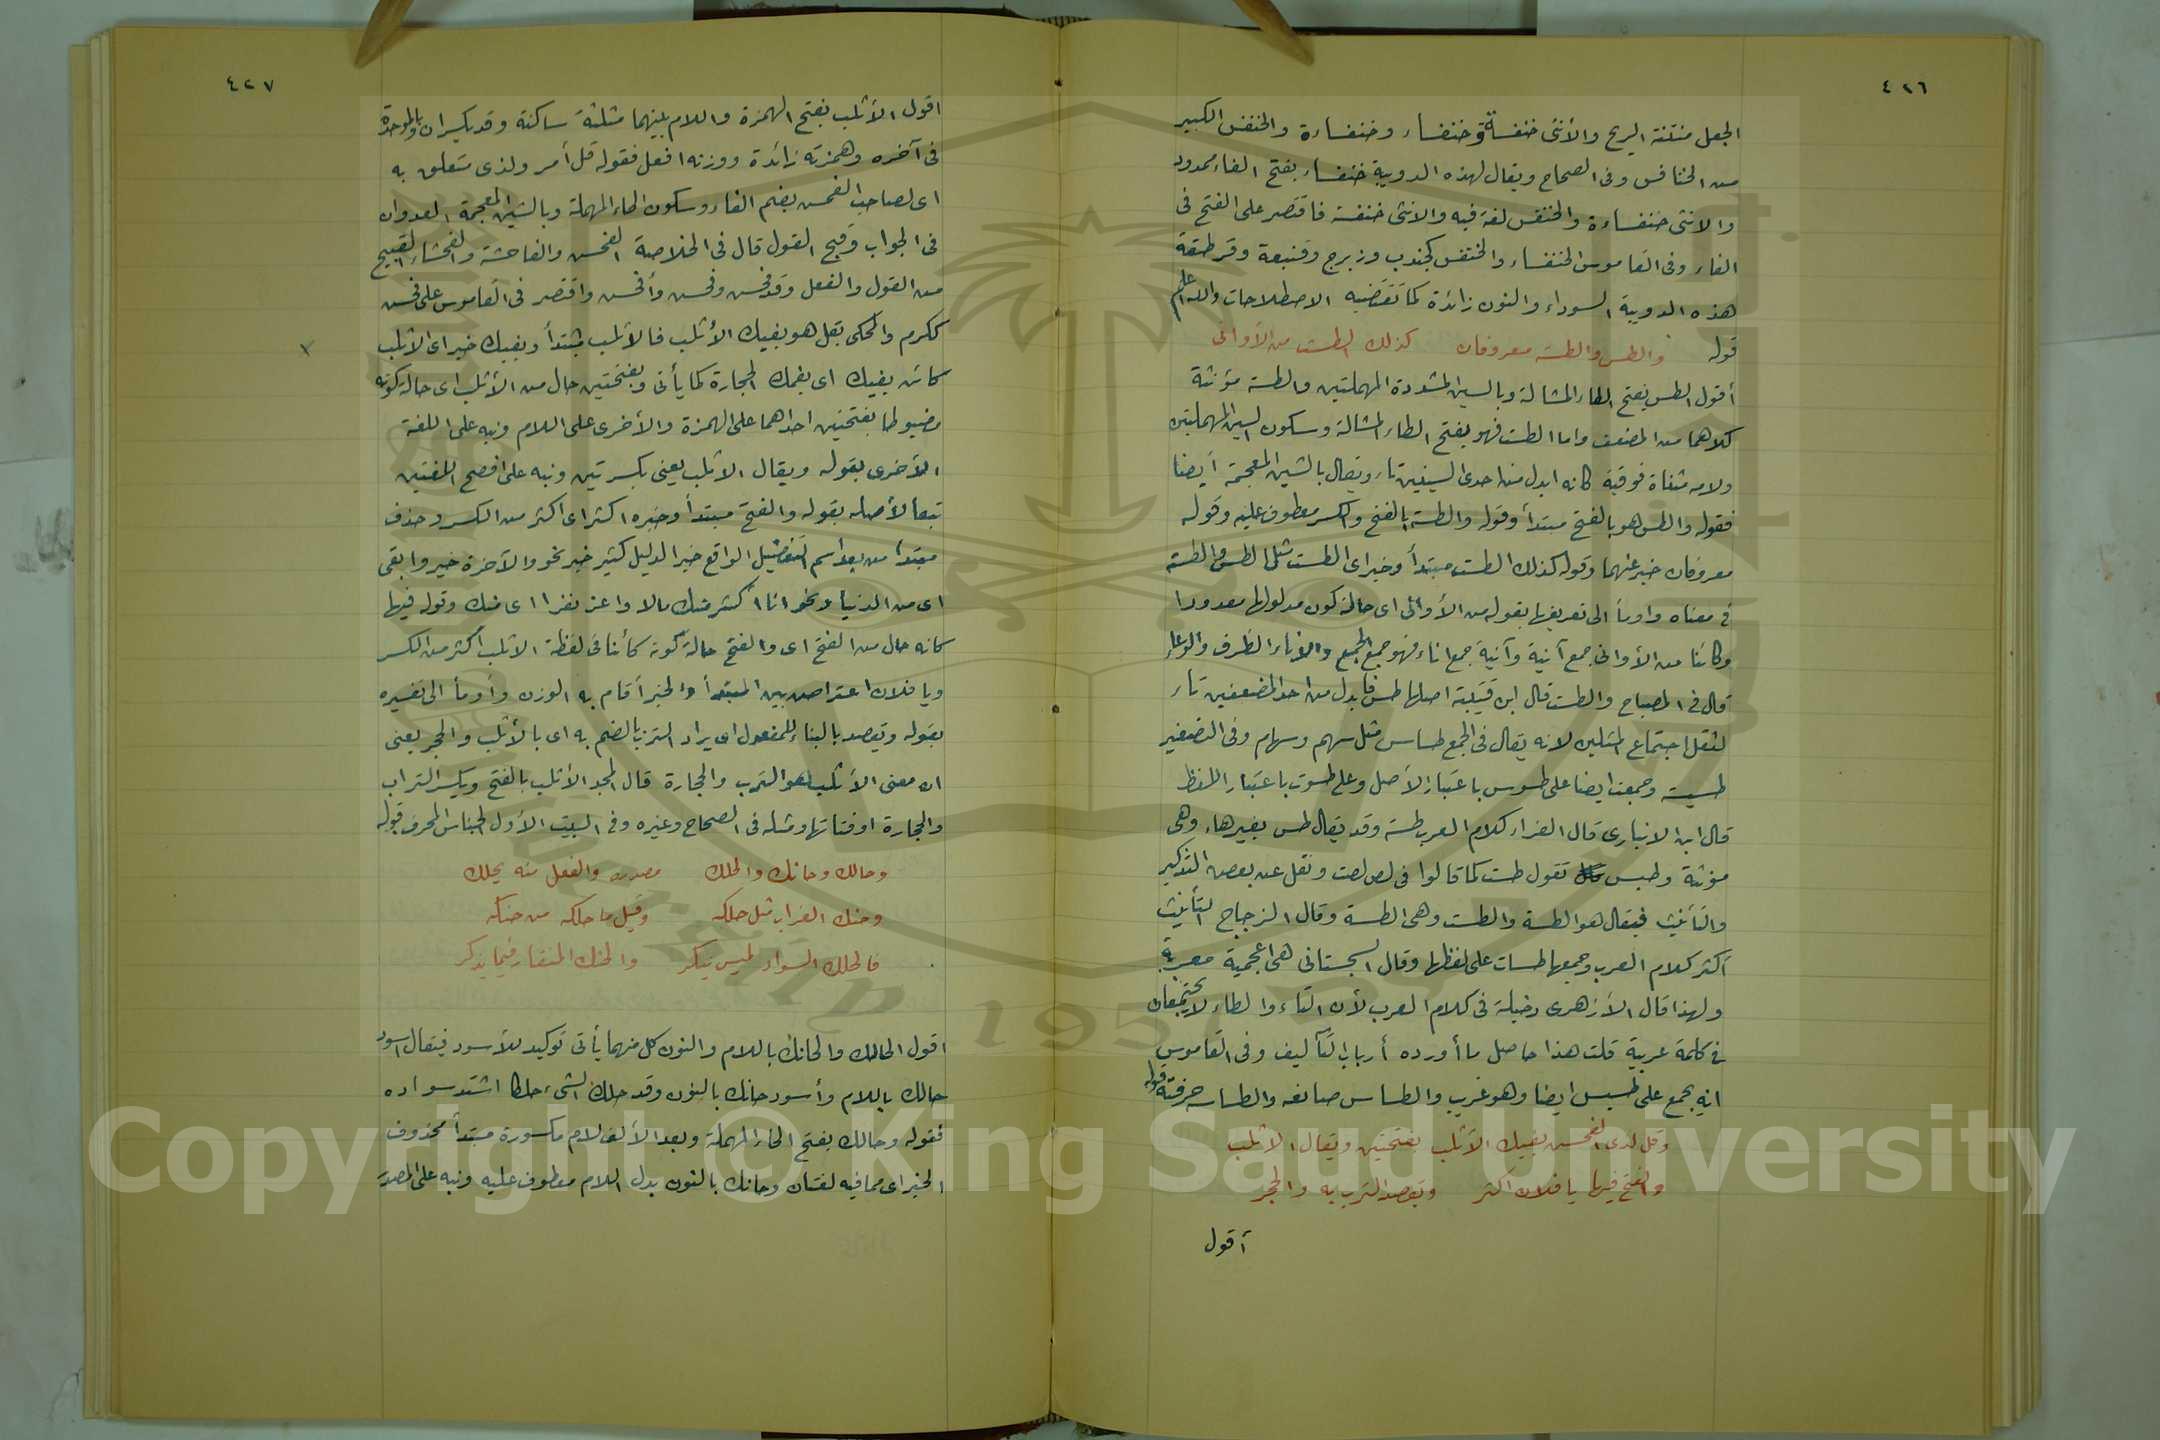 ٤٢٦
الجعل منتنة الريح والأنثى خنفسة وخنفساء وخنفساءة والخنفس الكبير
من الخنافس وفى الصحاح ويقال لهذه الدويبة خنفساء بفتح الفاء ممدود
والانثى خنفساءة والخنفس لغة فيه والانثى خنفسة فاقتصر على الفتح فى
الفاء وفى القاموس الخنفساء والخنفس كجندب وزبرج وقنبعة وقرطقة
هذه الدويبة السوداء والنون زائدة كما تقتضيه الاصطلاحات والله أعلم
قوله والطس والطسة معروفان كذلك الطست من الأوانى
أقول الطس بفتح الطاء المشالة وبالسين المشددة المهملتين والطسة مؤنثة
كلاهما من المضعف واما الطست فهو بفتح الطاء المشالة وسكون السين المهملتين
ولامه مثناة فوقية كانه ابدل من احدى السينين تاء ويقال بالشين المعجمة أيضا
فقوله والطس هو بالفتح مبتدأ وقوله والطسة بالفتح والكسر معطوف عليه وقوله
معروفان خبر عنهما وقوله كذلك الطست مبتدأ وخبر اى الطست مثل الطس والطسة
فى معناه واومأ الى تعريفها بقوله من الأوانى اى حالة كون مدلولها معدودا
وكائنا من الأوانى جمع آنية وآنية جمع اناء فهو جمع الجمع والاناء الظرف والوعاء
قال فى المصباح والطست قال ابن قتيبة اصلها طس فابدل من احد المضعفين تاء
لثقل اجتماع المثلين لانه يقال فى الجمع طساس مثل سهم وسهام وفى التصغير
طسيسة وجمعت ايضا على طسوس باعتبار الأصل وعلى طسوت باعتبار اللفظ
قال ابن الانبارى قال الفراء كلام العرب طسة وقد يقال طس بغير هاء وهى
مؤنثة وطيئ تقول طست كما قالوا فى لص لصت ونقل عن بعضهم التذكير
والتأنيث فيقال هو الطسة والطست وهى الطسة وقال الزجاج التأنيث
أكثر كلام العرب وجمعها طسات على لفظها وقال السجستانى هى اعجمية معربة
ولهذا قال الأزهرى دخيلة فى كلام العرب لأن التاء والطاء لا يجتمعان
فى كلمة عربية قلت هذا حاصل ما أورده أرباب التآليف وفى القاموس
انه يجمع على طسيس ايضا وهو غريب والطساس صانعه والطساسة حرفته قوله
وقل لدى الفحش بفيك الأثلب بفتحتين ويقال الاثلب
والفتح فيها يا فلان اكثر ويقصد الترب به والحجر
أقول
٤٢٧
اقول الأثلب بفتح الهمزة واللام بينهما مثلثة ساكنة وقد يكسران وبالموحدة
فى آخره وهمزته زائدة ووزنه افعل فقوله قل أمر ولذى متعلق به
اى لصاحب الفحش بضم الفاء وسكون الحاء المهملة وبالشين المعجمة العدوان
فى الجواب وقبح القول قال فى الخلاصة الفحش والفاحشة والفحشاء القبيح
من القول والفعل وقد فحش وفحش وأفحش واقتصر فى القاموس على فحش
ككرم والمحكى بقل هو بفيك الأثلب فالأثلب مبتدأ وبفيك خبر اى الاثلب
كائن بفيك اى بفمك الحجارة كما يأتى وبفتحتين حال من الأثلب اى حالة كونه
مضبوطا بفتحتين احداهما على الهمزة والأخرى على اللام ونبه على اللغة
الأخرى بقوله ويقال الاثلب يعنى بكسرتين ونبه على افصح اللغتين
تبعا لأصله بقوله والفتح مبتدأ وخبره اكثر اى اكثر من الكسر وحذف
مبتدأ من بعد اسم التفضيل الواقع خبرا لدليل كثير خبر نحو والآخرة خير وابقى
اى من الدنيا ونحو انا اكثر منك مالا واعز نفرا اى منك وقوله فيها
كانه حال من الفتح اى والفتح حالة كونه كائنا فى لفظة الاثلب اكثر من الكسر
ويا فلان اعتراض بين المبتدأ والخبر أقام به الوزن وأومأ الى تفسيره
بقوله ويقصد بالبناء للمفعول اى يراد الترب بالضم به اى بالأثلب والحجر يعنى
ان معنى الأثلب هو الترب والحجارة قال المجد الأثلب بالفتح ويكسر التراب
والحجارة او فتاتها ومثله فى الصحاح وغيره وفى البيت الأول الجناس المحرف قوله
وحالك وحانك والحلك مصدره والفعل منه يحلك
وحنك الغراب مثل حلكه وقيل ما حلكه من حنكه
فالحلك السواد ليس ينكر والحنك المنقار فيما يذكر
اقول الحالك والحانك باللام والنون كل منهما يأتى توكيد للأسود فيقال اسود
حالك باللام وأسود حانك بالنون وقد حلك الشىء حلكا اشتد سواده
فقوله وحالك بفتح الحاء المهملة وبعد الألف لام مكسورة مبتدأ محذوف
الخبر اى مما فيه لغتان وحانك بالنون بدل اللام معطوف عليه ونبه على المصدر
Copyright © King Saud University